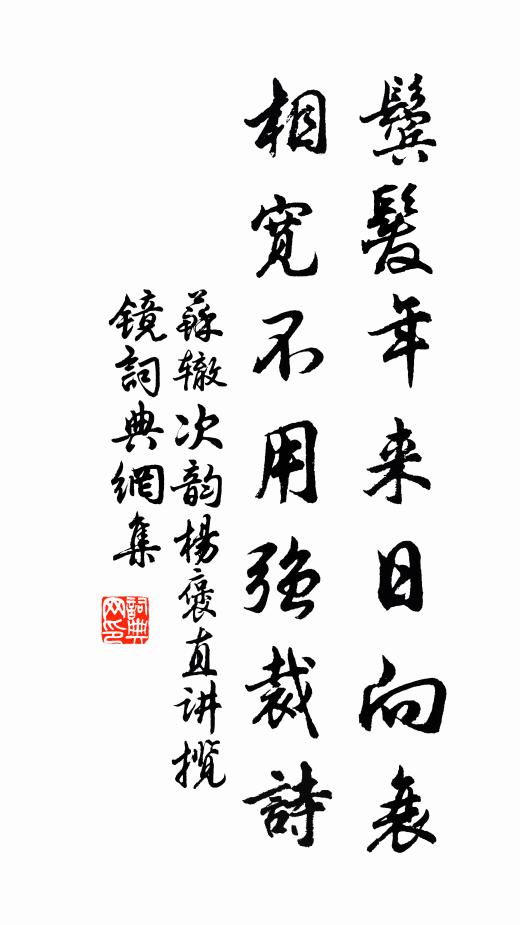 鬓髮年来日向衰
相寬不用强裁詩
蘇辙次韵楊褒直讲攬
鏡詞典網集
詞典
网印